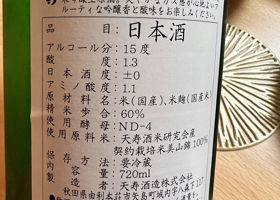 ーティな吟醸香と酸味をお楽しみください。
品目 日本酒
アルコール分：15度
酸度：1.3
日本酒度：±0
アミノ酸度：1.1
原材料名：米(国産)、米麹(国産米)
精米歩合：60%
使用酵母：ND-4
使用原料米：天寿酒米研究会産
契約栽培米美山錦100%
保存方法：要冷蔵
内容量：720ml
製造者：天寿酒造株式会社
秋田県由利本荘市矢島町城内字八森下117